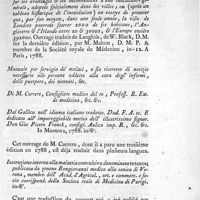 sur les avantages de
nouvelle, adoptée spécialement dans les villes, ou (d'après
table historique de l'inoculation) on essaye de prouver
que, par son moyen, dans une année seule, la ville de
Londres pourroit sauver 2000 de ses habitans, l'An-
gleterre & l'Irlande entre 20 & 30000, & l'Europe entière
370000. Ouvrage traduit de l'anglois, de W. Black, D.M.
sur la dernière édition, par M. Mahon, D. M. P. &
membre de la Société royale de Médecine, in-12. A
Paris, 1788.
Manuale per servigio de' malati, o sia ricordo di notizie
necessarie alle persone addette alla cura degl' infermi,
delle puerpere, dei neonati, &c.
Di M. Carrere, Consigliere medico del re, Profess. R. Em.
di medicina, &c. &c.
Dal Gallico nell' idioma italiano tradotto. Dad. F. A. e
dedicato all' impareggiabile merito dell' illustrissimo signor.
Don Gio Pietro Franck, consigl. Aulico imp. R., &c. &c.
In Mantova, 1788. in-8°.
Cet ouvrage de M. Carrere, dont il a paru une troisième
édition en 1788, est déjà traduit dans plusieurs langues.
Instruzione intorno alla malattia convulsiva denominata tetanos;
publicata da zenone Bongiovanni medico alla sanità di Ve-
rona, membro dell' Acad. d'Agricol., arte, e commerc., e
corrispond. della Societa reale di Medecina di Parigi.
in-8°.
C'est une traduction du rapport qui a été publié sur